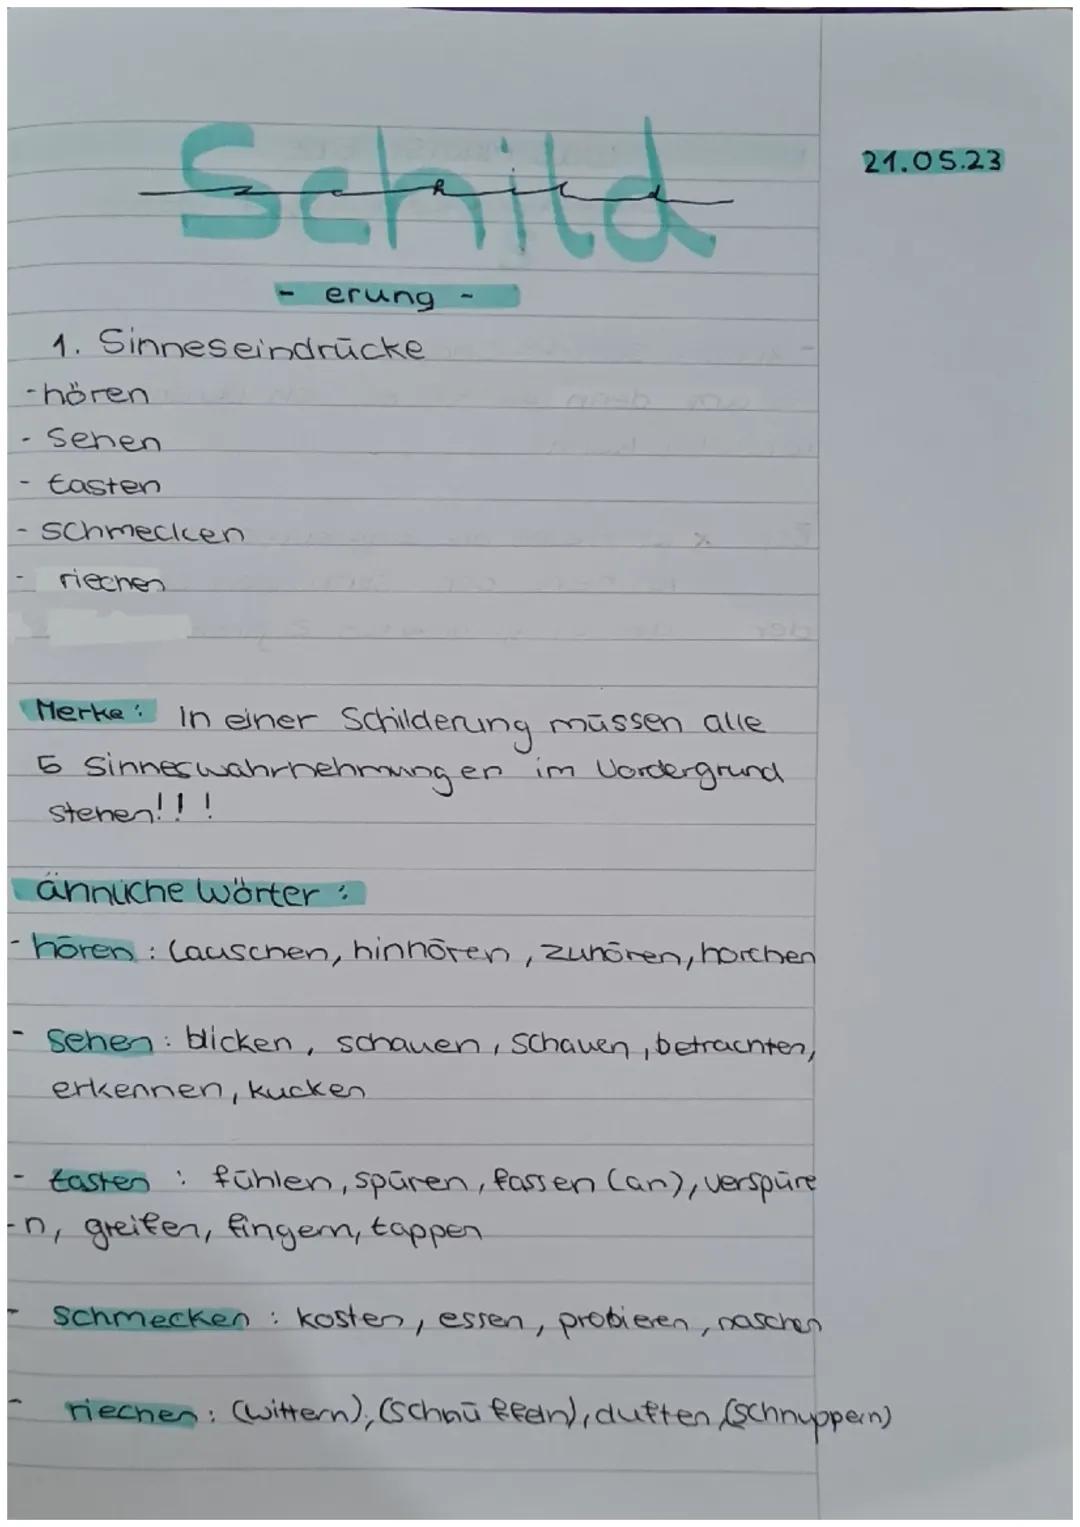 Schild
21.05.23
- erung -
1. Sinneseindrücke
- hören
- Sehen
- tasten
- schmecken
- riechen
Merke: In einer Schilderung müssen alle
5 Sinneswahrnehmungen im Vordergrund
stehen!!!
ähnliche Wörter:
- hören: lauschen, hinhören, zuhören, horchen
- Sehen: blicken, schauen, schauen, betrachten,
erkennen, kucken
- tasten: fühlen, spüren, fassen (an), verspüre
-n, greifen, fingern, tappen
- Schmecken: kosten, essen, probieren, naschen
- riechen: (wittern), (schnüffeln), duften, (schnuppern)